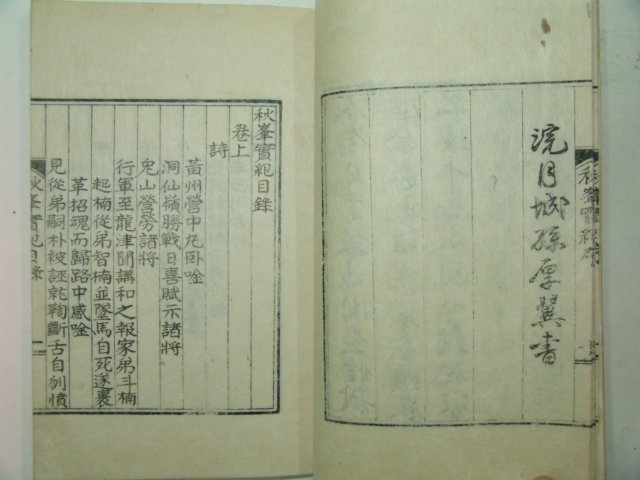 浣月城孫厚翼書
秋峯實紀目錄
卷上
詩
黃州營中九臥唫
洞仙嶺勝戰日喜賦示諸將
兔山營勞諸將
行軍至龍津聞講和之報家弟斗楠
起楠從弟智楠並墜馬自死遂裹
革招魂而歸路中感唫
見從弟嗣朴被誣就鞫斷舌自刎憤
秋峯實紀目錄
一